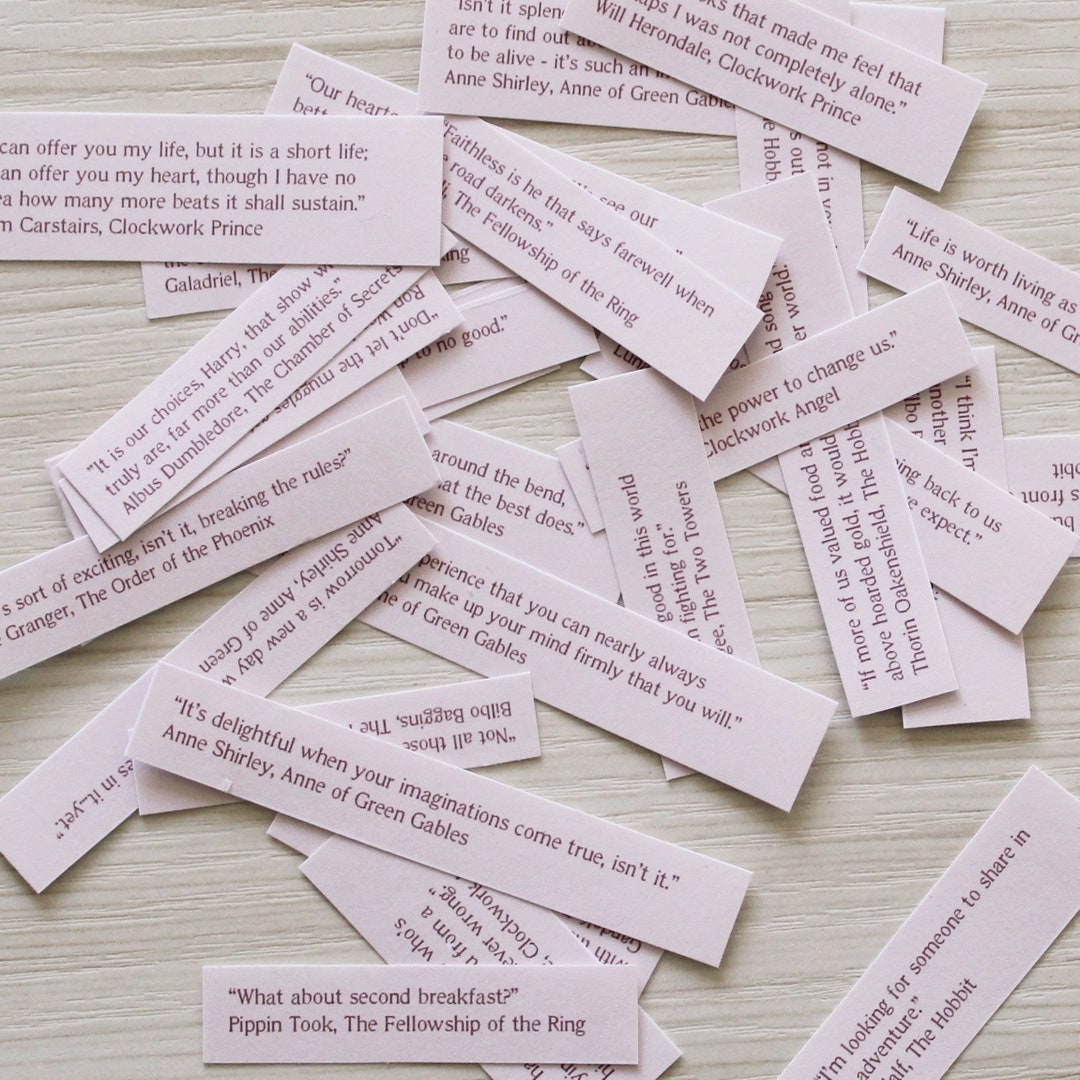 "Isn't it splen
are to find out
to be alive - it's such an in
Anne Shirley, Anne of Green Gable
oks that made me feel that
haps I was not completely alone."
Will Herondale, Clockwork Prince
"Our hearts
bett
can offer you my life, but it is a short life;
an offer you my heart, though I have no
ea how many more beats it shall sustain."
m Carstairs, Clockwork Prince
Galadriel, The
"Faithless is he that says farewell when
road darkens."
The Fellowship of the Ring
see our
ing
not in yo
s out
e Hobb
"Life is worth living as
Anne Shirley, Anne of Gr
"It is our choices, Harry, that show w
truly are, far more than our abilities."
Albus Dumbledore, The Chamber of Secrets
"Don't let the muggles
Ron w
to no good."
d song
er world,
the power to change us."
Clockwork Angel
"I think I'm
nother
lbo
s front
bbit
ning back to us
e expect."
"If more of us valued food a
above hoarded gold, it would
Thorin Oakenshield, The Hobb
good in this world
h fighting for."
ee, The Two Towers
around the bend,
at the best does."
reen Gables
's sort of exciting, isn't it, breaking the rules?"
Granger, The Order of the Phoenix
"Tomorrow is a new day w
Anne Shirley, Anne of Green
es in it...yet."
perience that you can nearly always
make up your mind firmly that you will."
ne of Green Gables
"Not all those
Bilbo Baggins, The
"It's delightful when your imaginations come true, isn't it."
Anne Shirley, Anne of Green Gables
who's
d from a
ever wrong."
Clockwork
with th
Gand
"What about second breakfast?"
Pippin Took, The Fellowship of the Ring
"I'm looking for someone to share in
adventure."
alf, The Hobbit